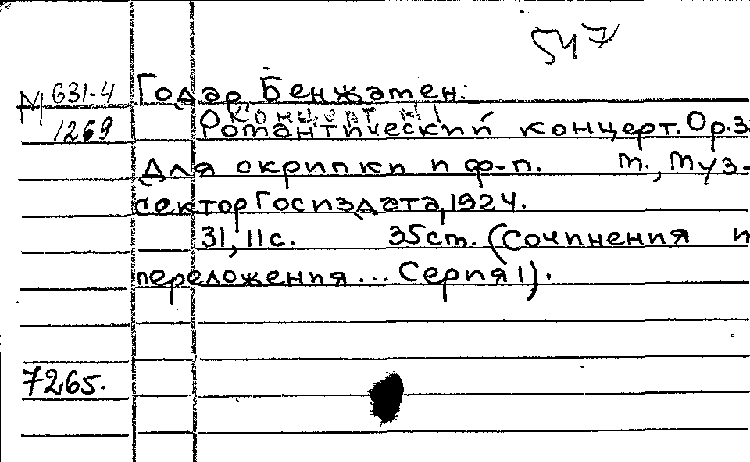 547
М 631-4
1269
Годар, Бенжамен.
Концерт №1
Романтический концерт. Op. 3
Для скрипки и ф-п. М., Муз-
сектор Госиздата, 1924.
31, 11 с. 35 ст. (Сочинения и
переложения... Серия I).
7265.